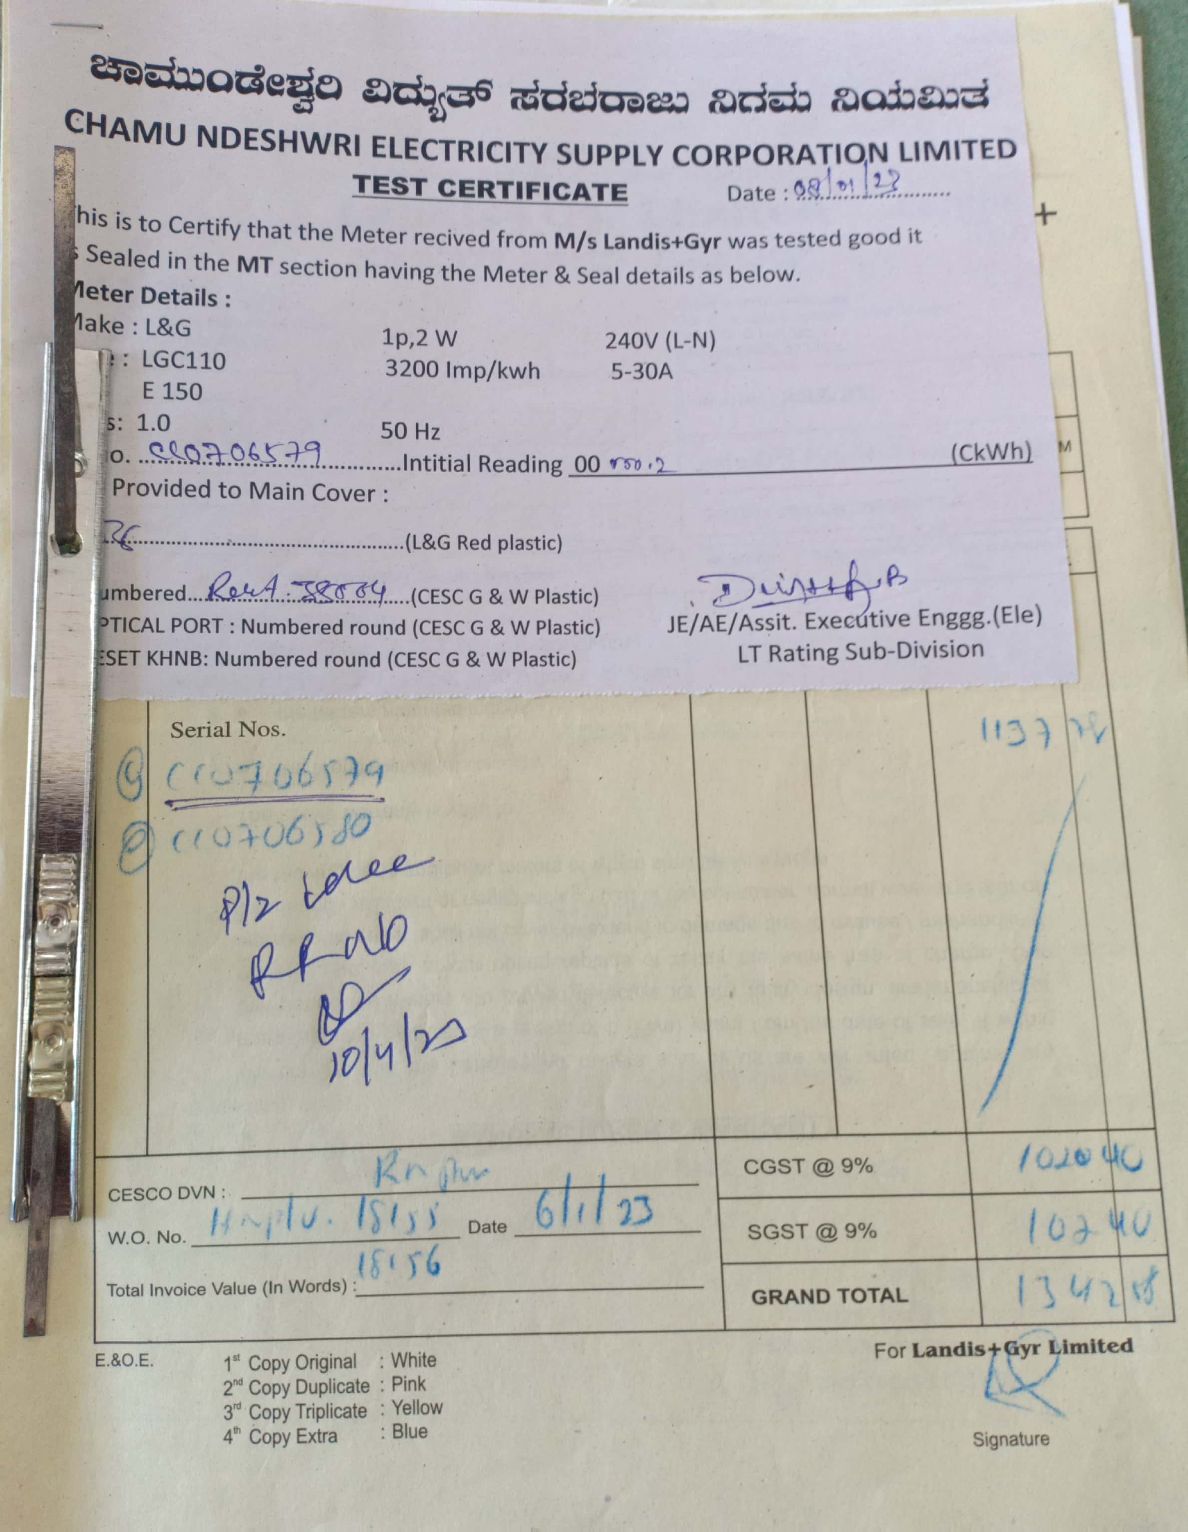 ಚಾಮುಂಡೇಶ್ವರಿ ವಿದ್ಯುತ್ ಸರಬರಾಜು ನಿಗಮ ನಿಯಮಿತ
CHAMU NDESHWRI ELECTRICITY SUPPLY CORPORATION LIMITED
TEST CERTIFICATE Date : 08/01/23
his is to Certify that the Meter recived from M/s Landis+Gyr was tested good it
s Sealed in the MT section having the Meter & Seal details as below.
Meter Details :
Make : L&G 1p,2 W 240V (L-N)
: LGC110 3200 Imp/kwh 5-30A
E 150
s: 1.0 50 Hz
o. CC0706579 Intitial Reading 00 (CkWh)
Provided to Main Cover :
(L&G Red plastic)
umbered (CESC G & W Plastic)
PTICAL PORT : Numbered round (CESC G & W Plastic)
ESET KHNB: Numbered round (CESC G & W Plastic)
JE/AE/Assit. Executive Enggg.(Ele)
LT Rating Sub-Division
+
M
Serial Nos. 1137 78
CC0706579
CC0706580
10/4/23
CESCO DVN :
W.O. No. 18155 Date 6/1/23
18156
Total Invoice Value (In Words) :
CGST @ 9% 102 40
SGST @ 9% 102 40
GRAND TOTAL 1342 58
E.&O.E.
1st Copy Original : White
2nd Copy Duplicate : Pink
3rd Copy Triplicate : Yellow
4th Copy Extra : Blue
For Landis+Gyr Limited
Signature